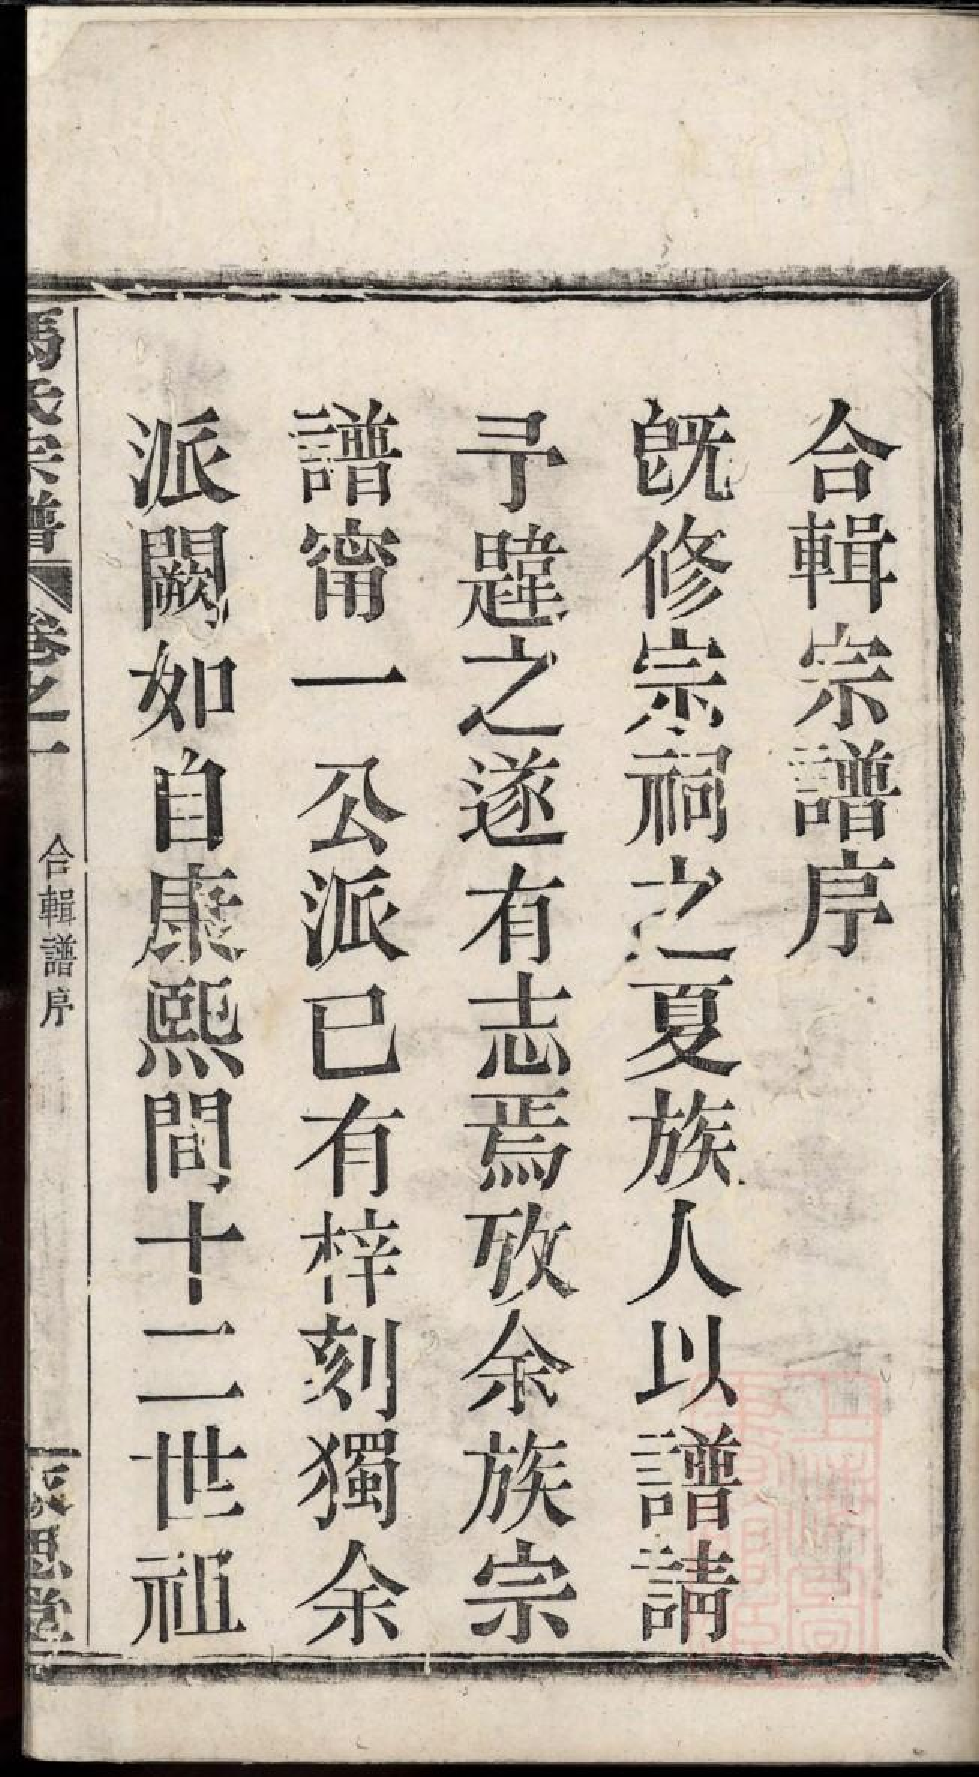 合輯宗譜序
旣修宗祠之夏族人以譜請
予韙之遂有志焉攷余族宗
譜甯一公派已有梓刻獨余
派闕如自康熙間十二世祖
馮氏宗譜 卷之一 合輯譜序 思堂